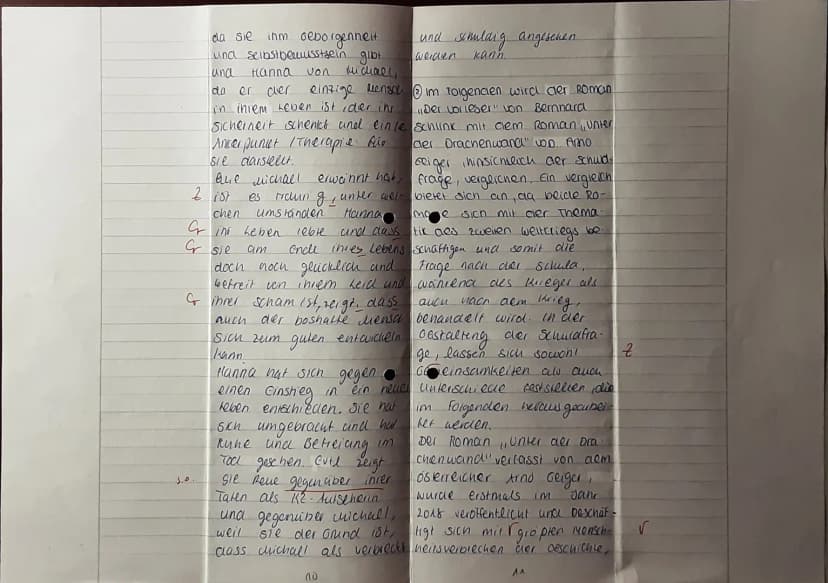 da sie ihm Geborgenheit
und Selbstbewusstsein gibt
und Hanna von Michael,
da er der einzige Mensch
in ihrem Leben ist, der ihr
Sicherheit schenkt und eine
Ankerpunkt / Therapie für
sie darstellt.
Wie Michael erwähnt hat,
Z ist es traurig, unter wel-
chen Umständen Hanna
Gr ihr Leben lebte und dass
Gr sie am Ende ihres Lebens
doch noch glücklich und
befreit von ihrem Leid und
Gr ihrer Scham ist, zeigt, dass
auch der boshafte Mensch
sich zum guten entwickeln
kann.
Hanna hat sich gegen
einen Einstieg in ein neues
Leben entschieden. Sie hat
sich umgebracht und hat
Ruhe und Befreiung im
Tod gesehen. Evtl zeigt
s.o. sie Reue gegenüber ihrer
Taten als KZ-Aufseherin
und gegenüber Michael,
weil sie der Grund ist,
dass Michael als verbreche
10
und schuldig angesehen
werden kann.
② Im Folgenden wird der Roman
„Der Vorleser" von Bernhard
Schlink mit dem Roman „Unter
der Drachenwand" von Arno
Geiger, hinsichtlich der Schuld-
frage, verglichen. Ein Vergleich
bietet sich an, da beide Ro-
mane sich mit der Thema-
tik des zweiten Weltkriegs be-
schäftigen und somit die
Frage nach der Schuld,
während des Krieges als
auch nach dem Krieg,
behandelt wird. In der
Gestaltung der Schuldfra-
ge, lassen sich sowohl Z
Gemeinsamkeiten als auch
Unterschiede feststellen, die
im Folgenden herausgearbei-
tet werden.
Der Roman „Unter der Dra-
chenwand" verfasst von dem
Österreicher Arno Geiger,
wurde erstmals im Jahr
2018 veröffentlicht und beschäf-
tigt sich mit √ größten Mensch- √
heitsverbrechen der Geschichte,
11